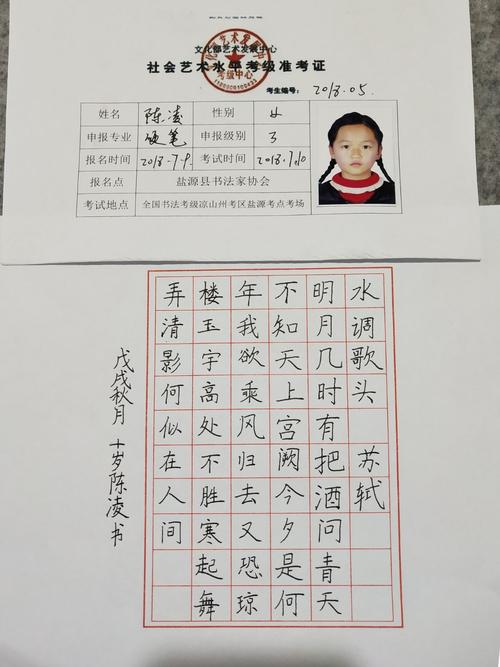 文化部艺术发展中心
社会艺术水平考级准考证
考级中心
考生编号：2018.05.
姓名 陈凌 性别 女
申报专业 硬笔 申报级别 3
报名时间 2018.7.9. 考试时间 2018.7.10
报名点 盐源县书法家协会
考试地点 全国书法考级凉山州考区盐源考点考场
水调歌头 苏轼
明月几时有把酒问青天
不知天上宫阙今夕是何
年我欲乘风归去又恐琼
楼玉宇高处不胜寒起舞
弄清影何似在人间
戊戌秋月 十岁陈凌书